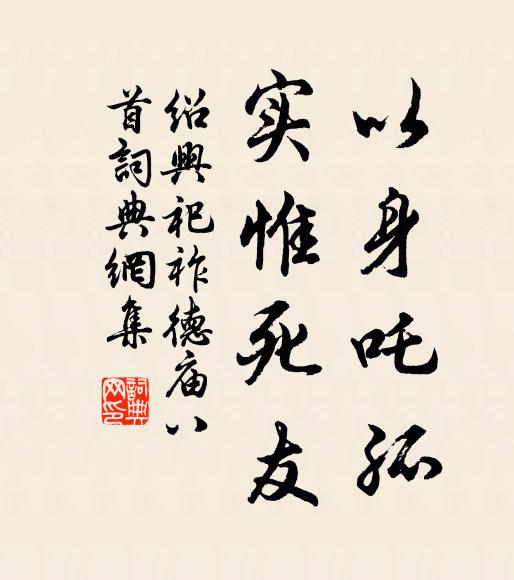 以身吒孤
实惟死友
绍興祀祚德庙八
首詞典網集
詞典
网印